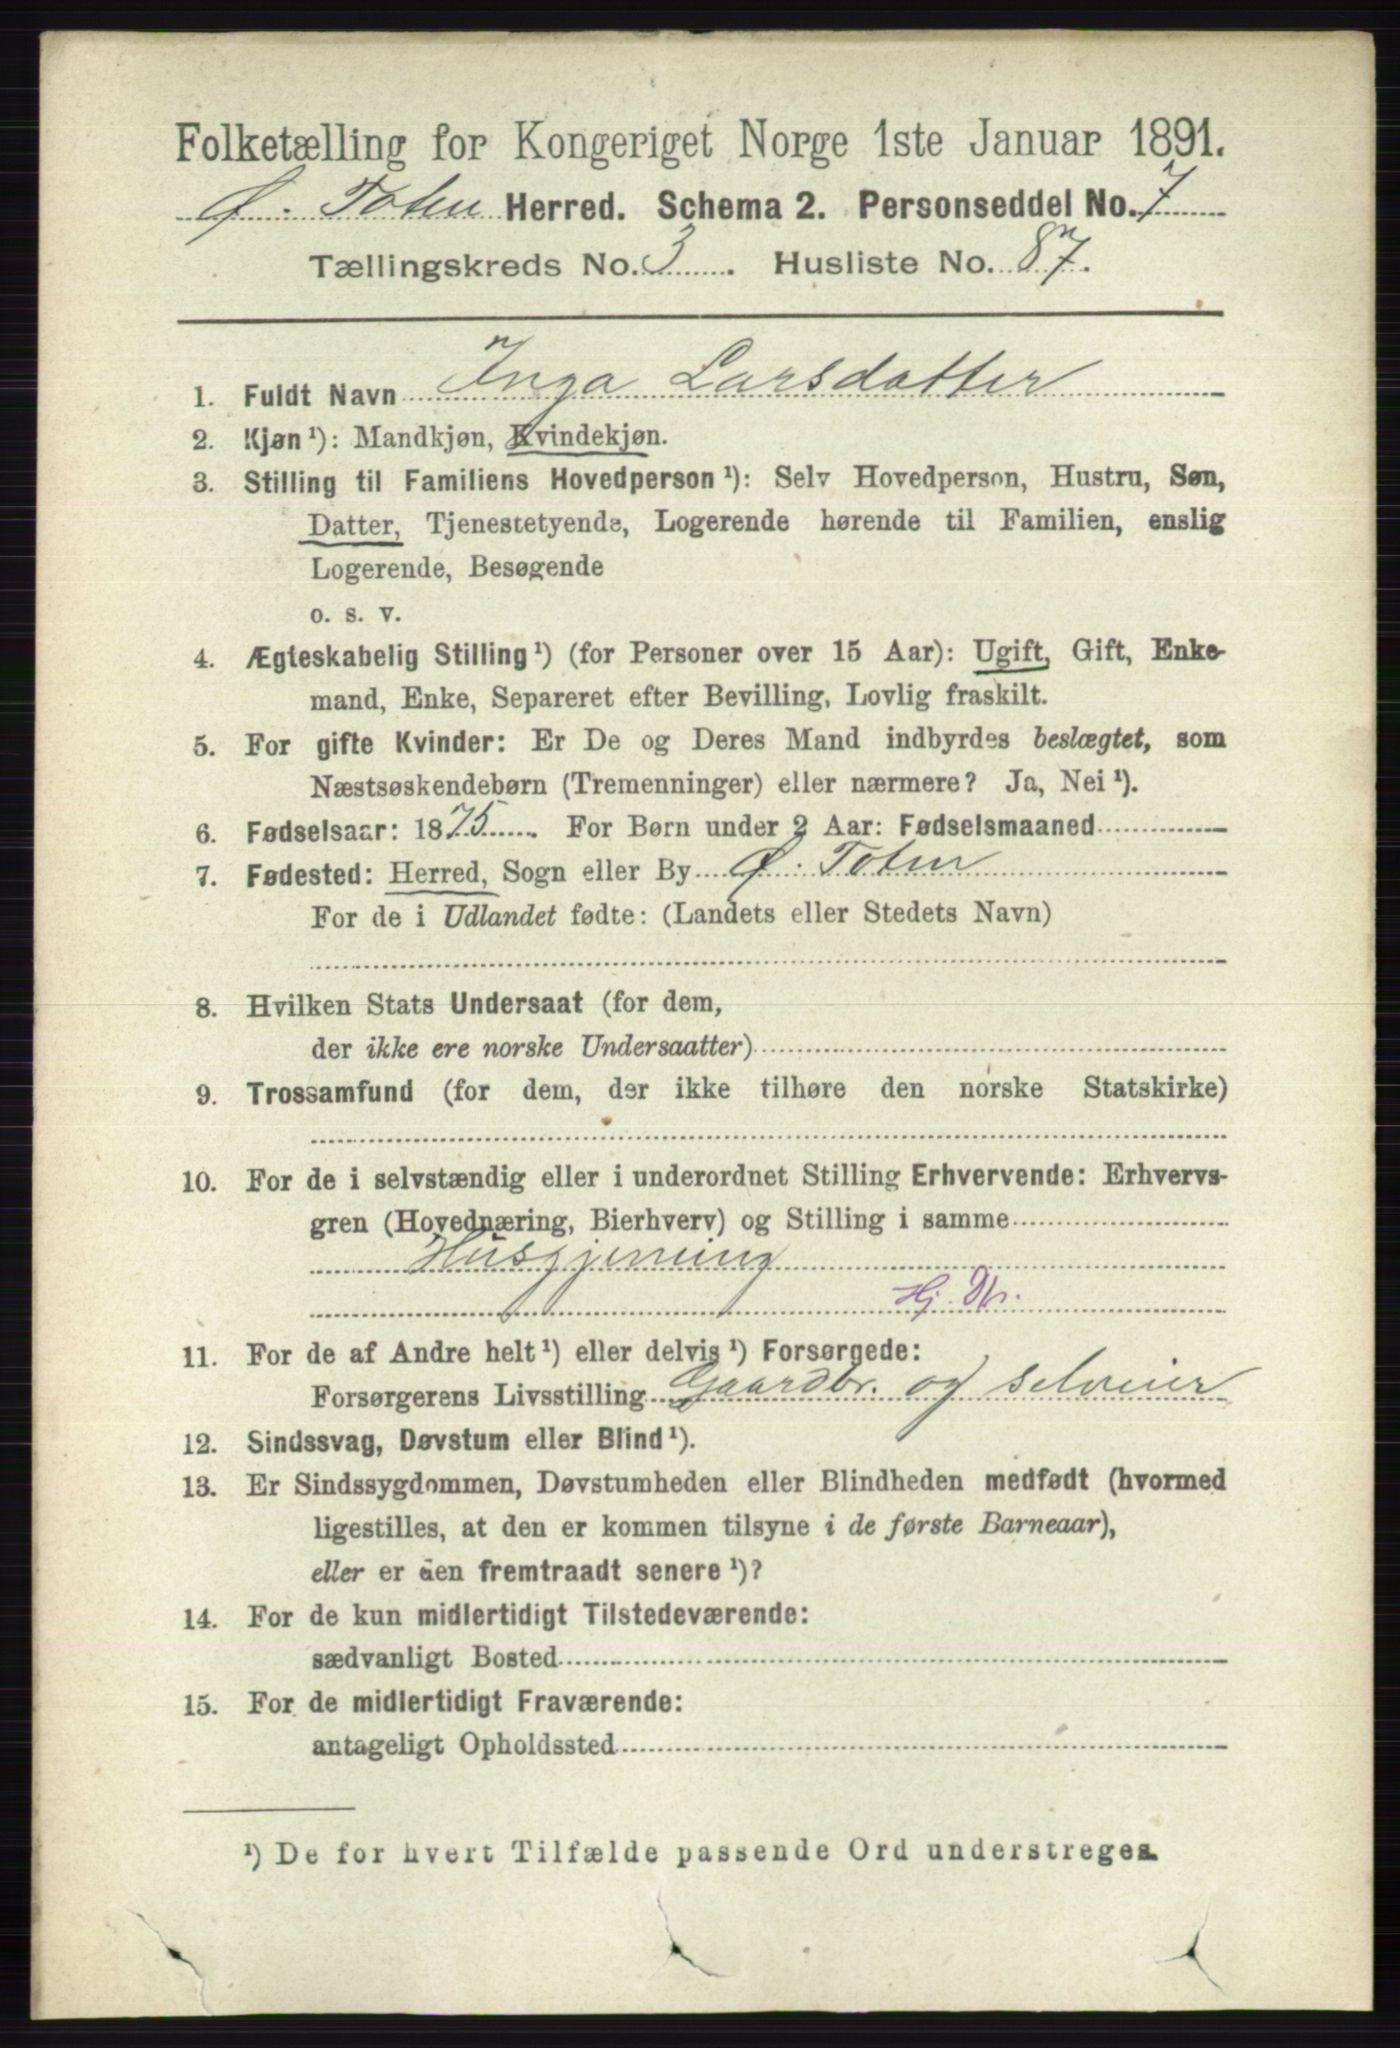 Folketælling for Kongeriget Norge 1ste Januar 1891.
Ø. Toten Herred. Schema 2. Personseddel No. 7
Tællingskreds No. 3. Husliste No. 87.
1. Fuldt Navn Inga Larsdatter
2. Kjøn¹): Mandkjøn, Kvindekjøn.
3. Stilling til Familiens Hovedperson¹): Selv Hovedperson, Hustru, Søn,
Datter, Tjenestetyende, Logerende hørende til Familien, enslig
Logerende, Besøgende
o. s. v.
4. Ægteskabelig Stilling¹) (for Personer over 15 Aar): Ugift, Gift, Enke-
mand, Enke, Separeret efter Bevilling, Lovlig fraskilt.
5. For gifte Kvinder: Er De og Deres Mand indbyrdes beslægtet, som
Næstsøskendebørn (Tremenninger) eller nærmere? Ja, Nei¹).
6. Fødselsaar: 1875. For Børn under 2 Aar: Fødselsmaaned
7. Fødested: Herred, Sogn eller By Ø. Toten
For de i Udlandet fødte: (Landets eller Stedets Navn)
8. Hvilken Stats Undersaat (for dem,
der ikke ere norske Undersaatter)
9. Trossamfund (for dem, der ikke tilhøre den norske Statskirke)
10. For de i selvstændig eller i underordnet Stilling Erhvervende: Erhvervs-
gren (Hovednæring, Bierhverv) og Stilling i samme
Husgjerning
Hj. Dtr.
11. For de af Andre helt¹) eller delvis¹) Forsørgede:
Forsørgerens Livsstilling Gaardbr. og selveier
12. Sindssvag, Døvstum eller Blind¹).
13. Er Sindssygdommen, Døvstumheden eller Blindheden medfødt (hvormed
ligestilles, at den er kommen tilsyne i de første Barneaar),
eller er den fremtraadt senere¹)?
14. For de kun midlertidigt Tilstedeværende:
sædvanligt Bosted
15. For de midlertidigt Fraværende:
antageligt Opholdssted
¹) De for hvert Tilfælde passende Ord understreges.